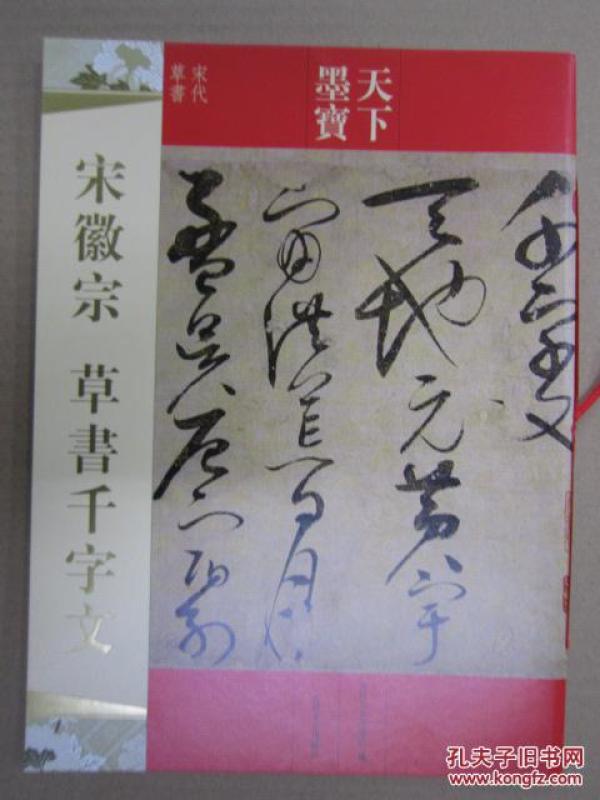 天下
墨寶
宋代
草書
宋徽宗 草書千字文
千字文
天地元黄宇
宙洪荒日月
盈昃辰宿列
孔夫子旧书网
www.kongfz.com